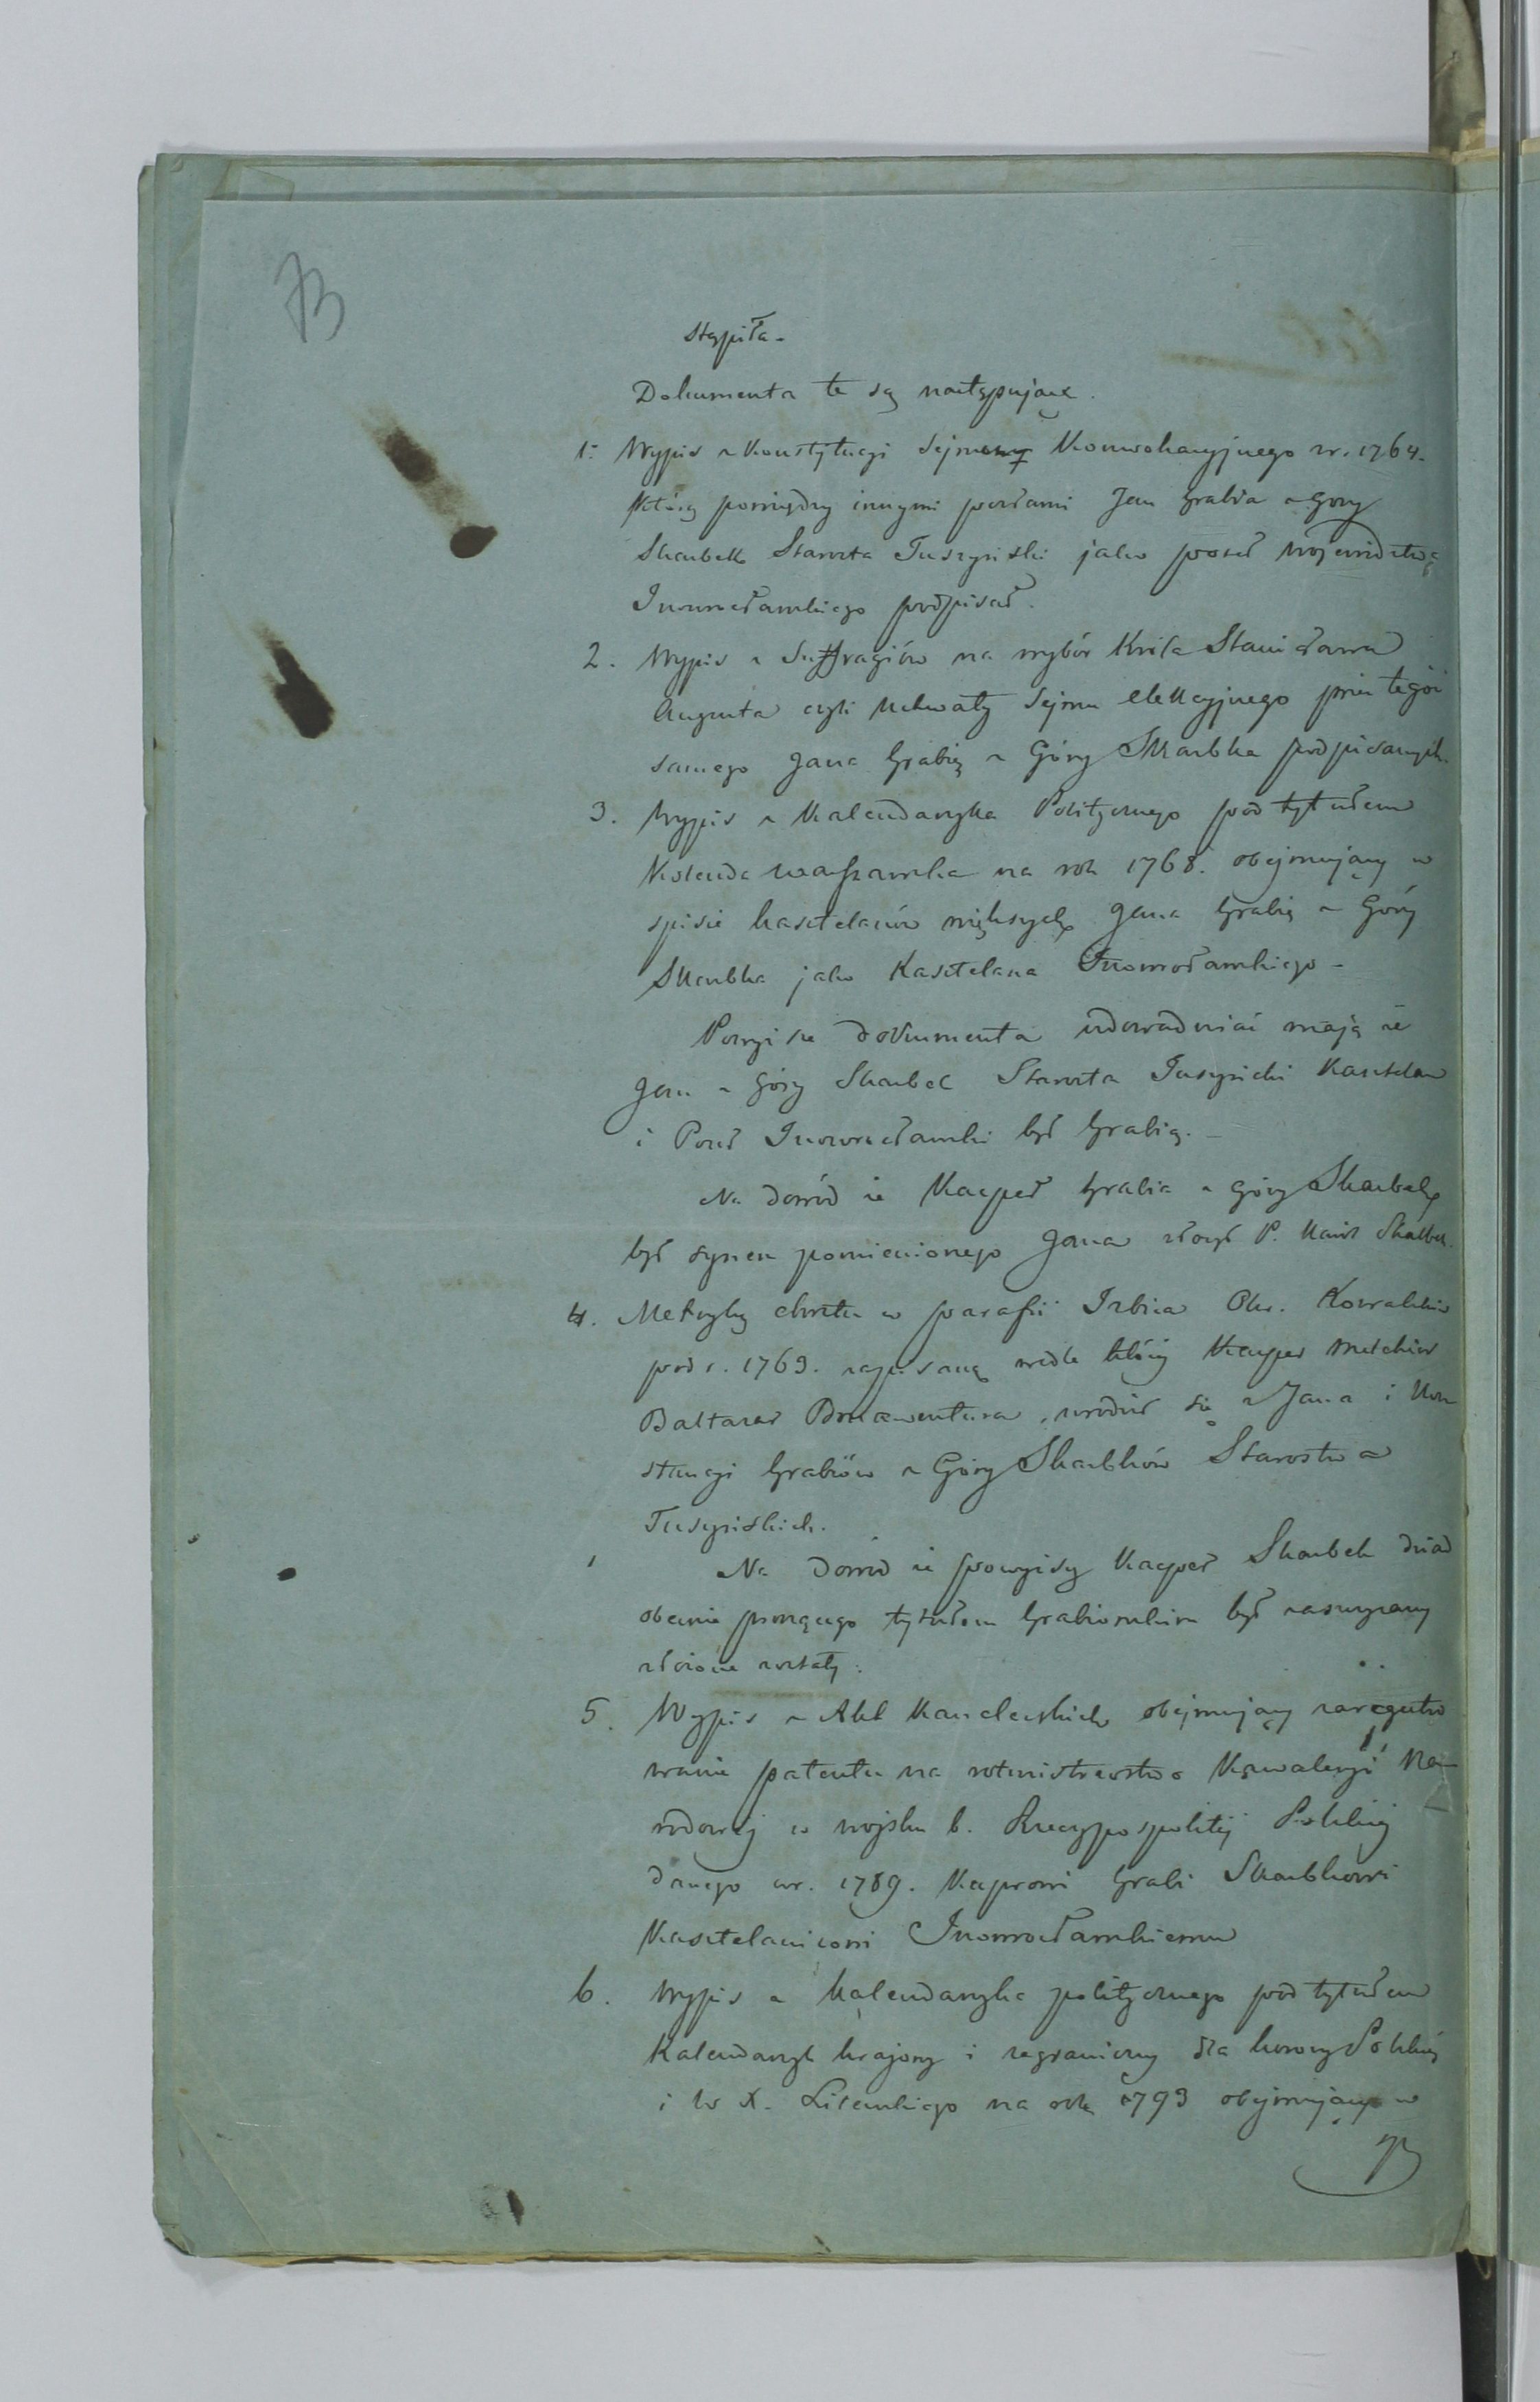 stąpiła.
Dokumenta te są następujące.
1. Wypis z Konstytucyi Sejmu Konwokacyjnego z r. 1764.
którą pomiędzy innymi posłami Jan Grabia z Gory
Skarbek Starosta Tuszyński jako poseł Województwa
Inowrocławskiego podpisał.
2. Wypis z Suffragiów na wybór Króla Stanisława
Augusta czyli Uchwały Sejmu elekcyjnego przez tegoż
samego Jana Grabię z Góry Skarbka podpisanych.
3. Wypis z Kalendarzyka Politycznego pod tytułem
Kolenda warszawska na rok 1768. obejmujący w
spisie kasztelanów większych Jana Grabię z Góry
Skarbka jako Kasztelana Inowrocławskiego -
Powyższe dokumenta udowadniać mają że
Jan z Góry Skarbek Starosta Tuszyński Kasztelan
i Poseł Inowrocławski był Grabią. -
Na dowód że Kacper Grabia z Góry Skarbek
był synem pomienionego Jana złożył P. Karol Skarbek.
4. Metrykę chrztu w parafii Izbica Okr. Kowalskim
pod r. 1763. zapisaną wedle której Kacper Melchior
Baltazar Bonawentura, urodził się z Jana i Kon
stancyi Grabiów z Góry Skarbków Starostwa
Tuszyńskich.
Na dowód że powyższy Kacper Skarbek dziad
obecnie proszącego tytułem Grabiowskim był zaszczycany
złożone zostały:
5. Wypis z Akt Kanclerskich obejmujący zaregestro
wanie patentu na rotmistrzostwo Kawaleryi Na
rodowej w wojsku b. Rzeczypospolitej Polskiej
danego w r. 1789. Kacprowi Grabi Skarbkowi
Kasztelanicowi Inowrocławskiemu
6. Wypis z Kalendarzyka politycznego pod tytułem
Kalendarzyk krajowy i zagraniczny dla korony Polskiej
i W X. Litewskiego na rok 1793 obejmujący w